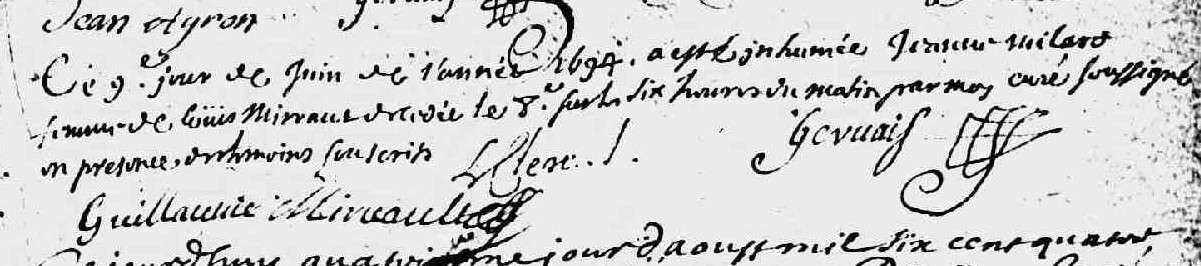 Jean Agron Gervais
Ce 9.e jour de Juin de l'année 1694. a esté inhumée Jeanne Milard
femme de Louis Mirvaut decedée le 8.e sur les six heures du matin par moy curé soussigné
en presence des temoins souscrits
LeClerc Gervais
Guillaume Mirvault
jour d'aoust mil six cent quatre